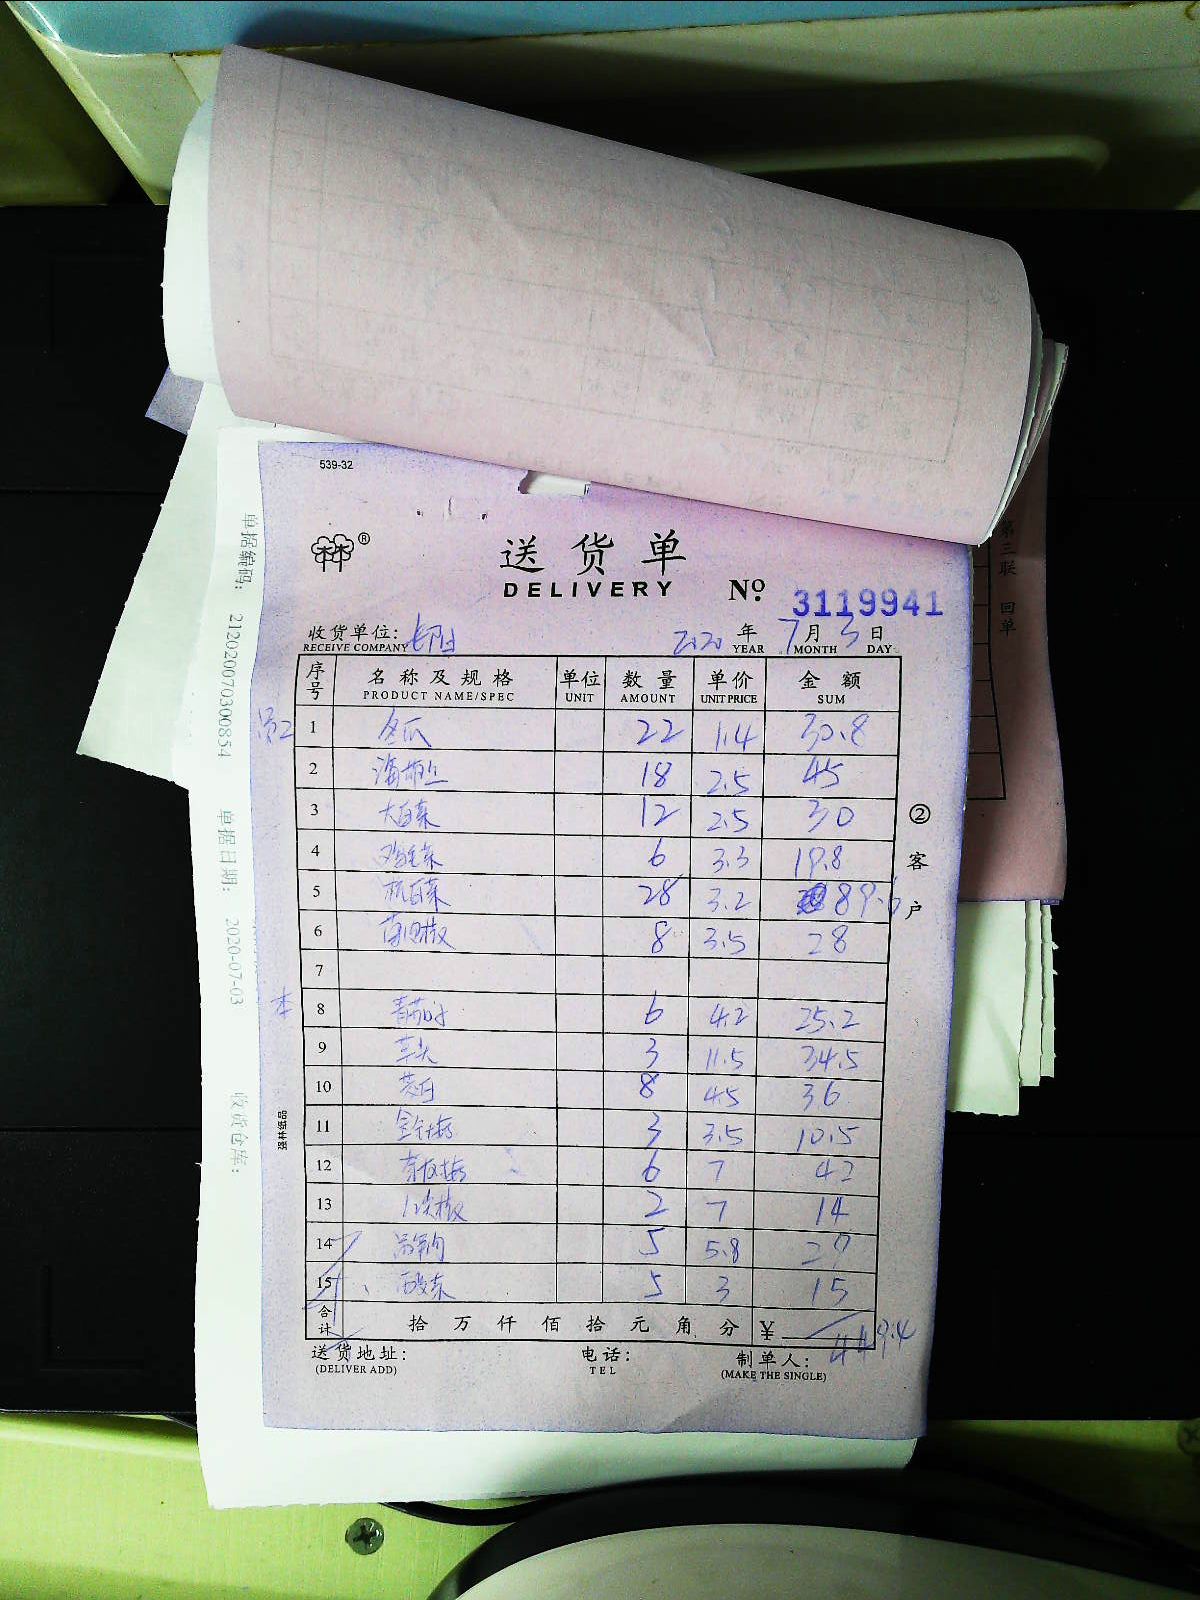 539-32
送货单
DELIVERY
№ 3119941
收货单位: 长阳 2020 年 7 月 3 日
RECEIVE COMPANY YEAR MONTH DAY
序号 名称及规格 单位 数量 单价 金额
PRODUCT NAME/SPEC UNIT AMOUNT UNIT PRICE SUM
1 冬瓜 22 1.4 30.8
2 海带丝 18 2.5 45
3 大白菜 12 2.5 30
4 鸡毛菜 6 3.3 19.8
5 杭白菜 28 3.2 89.6
6 8 3.5 28
7
本 8 6 4.2 25.2
9 芋头 3 11.5 34.5
10 茭白 8 4.5 36
11 金针菇 3 3.5 10.5
12 6 7 42
13 尖椒 2 7 14
14 5 5.8 29
15 酸菜 5 3 15
合计 拾 万 仟 佰 拾 元 角 分 ¥ 449.4
送货地址: 电话: 制单人:
(DELIVER ADD) TEL (MAKE THE SINGLE)
② 客户
强林纸品
单据编码: 212020070300854 单据日期: 2020-07-03 收货仓库:
第三联 回单